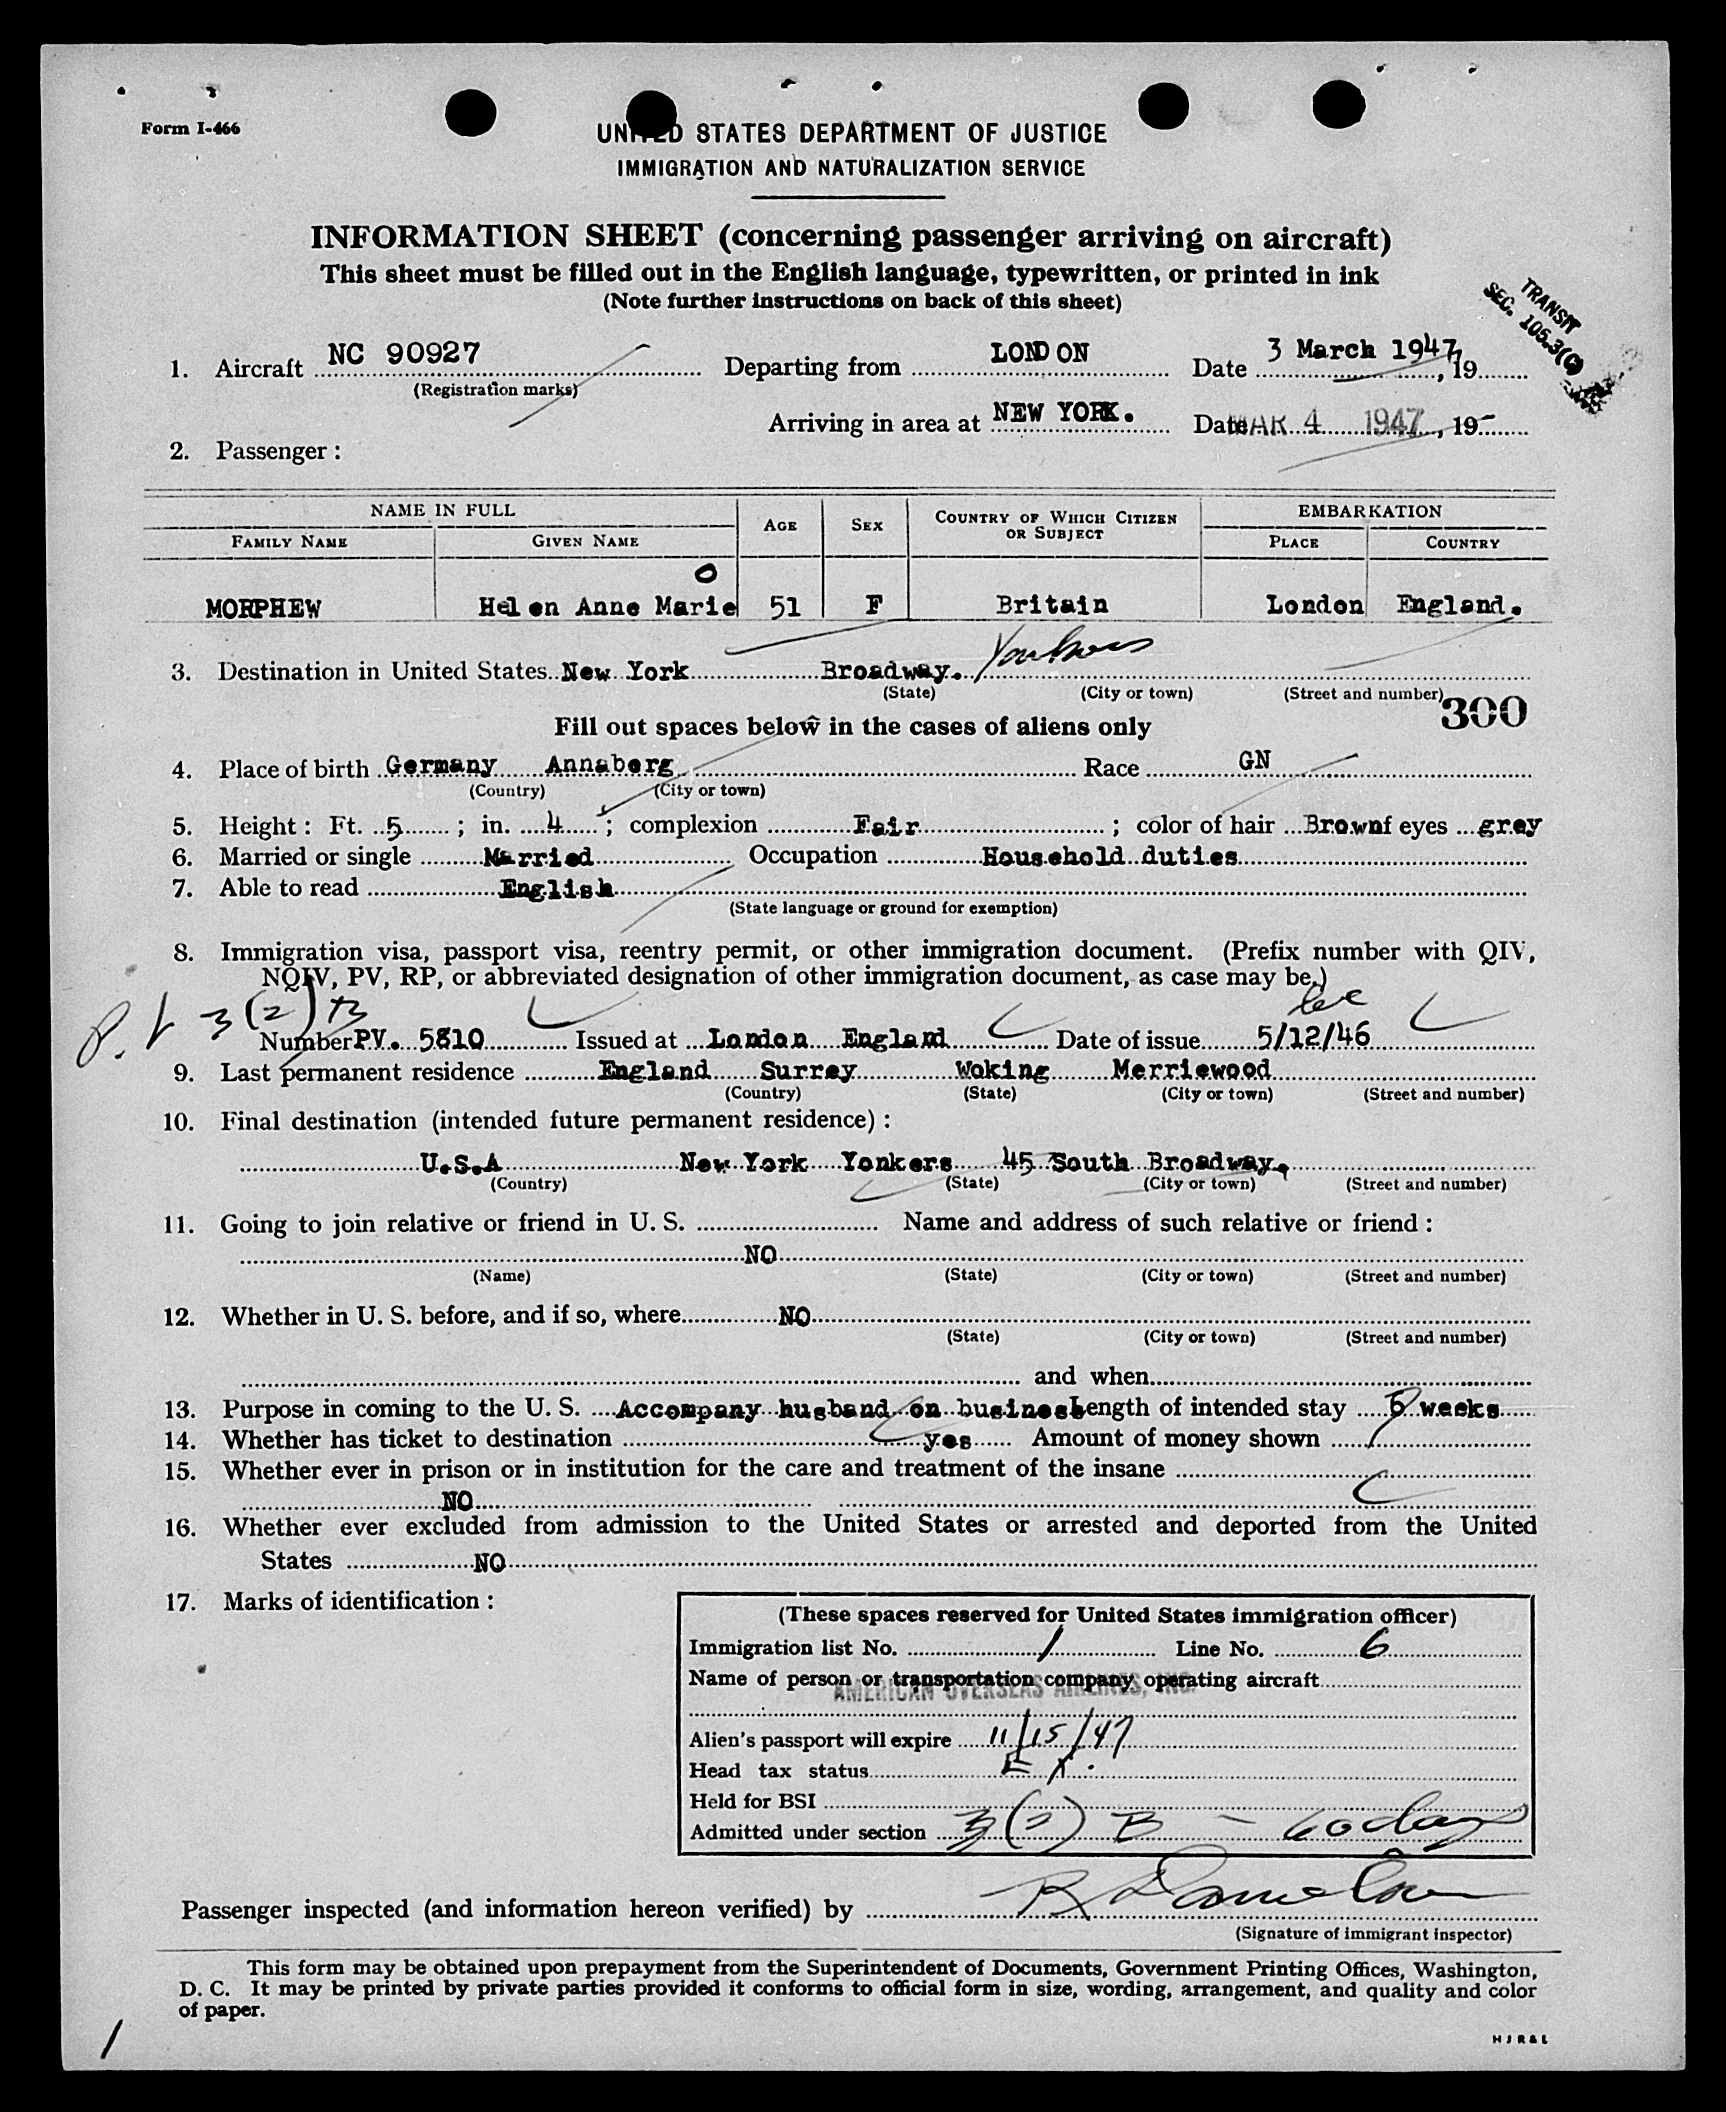 Form I-466
UNITED STATES DEPARTMENT OF JUSTICE
IMMIGRATION AND NATURALIZATION SERVICE
INFORMATION SHEET (concerning passenger arriving on aircraft)
This sheet must be filled out in the English language, typewritten, or printed in ink
(Note further instructions on back of this sheet)
TRANSIT
SEC. 105.3(C)
1. Aircraft NC 90927 Departing from LONDON Date 3 March 1947, 19
(Registration marks)
Arriving in area at NEW YORK. Date MAR 4 1947, 19
2. Passenger :
NAME IN FULL AGE SEX COUNTRY OF WHICH CITIZEN OR SUBJECT EMBARKATION
FAMILY NAME GIVEN NAME PLACE COUNTRY
O
MORPHEW Helen Anne Marie 51 F Britain London England.
3. Destination in United States New York Broadway. Yonkers
(State) (City or town) (Street and number)
300
Fill out spaces below in the cases of aliens only
4. Place of birth Germany Annaberg Race GN
(Country) (City or town)
5. Height : Ft. 5 ; in. 4 ; complexion Fair ; color of hair Brown of eyes grey
6. Married or single Married Occupation Household duties
7. Able to read English
(State language or ground for exemption)
8. Immigration visa, passport visa, reentry permit, or other immigration document. (Prefix number with QIV,
NQIV, PV, RP, or abbreviated designation of other immigration document, as case may be.)
P.V 3(2)B
Number PV. 5810 Issued at London England Date of issue 5/12/46
9. Last permanent residence England Surrey Woking Merriewood
(Country) (State) (City or town) (Street and number)
10. Final destination (intended future permanent residence) :
U.S.A New York Yonkers 45 South Broadway.
(Country) (State) (City or town) (Street and number)
11. Going to join relative or friend in U. S. Name and address of such relative or friend :
NO
(Name) (State) (City or town) (Street and number)
12. Whether in U. S. before, and if so, where NO
(State) (City or town) (Street and number)
and when
13. Purpose in coming to the U. S. Accompany husband on business Length of intended stay 6 weeks
14. Whether has ticket to destination yes Amount of money shown
15. Whether ever in prison or in institution for the care and treatment of the insane
NO
16. Whether ever excluded from admission to the United States or arrested and deported from the United
States NO
17. Marks of identification :
(These spaces reserved for United States immigration officer)
Immigration list No. 1 Line No. 6
Name of person or transportation company operating aircraft
AMERICAN OVERSEAS AIRLINES, INC.
Alien's passport will expire 11/15/47
Head tax status EX.
Held for BSI
Admitted under section 3(2)B - 60 days
Passenger inspected (and information hereon verified) by
(Signature of immigrant inspector)
This form may be obtained upon prepayment from the Superintendent of Documents, Government Printing Offices, Washington,
D. C. It may be printed by private parties provided it conforms to official form in size, wording, arrangement, and quality and color
of paper.
1
H J R & L